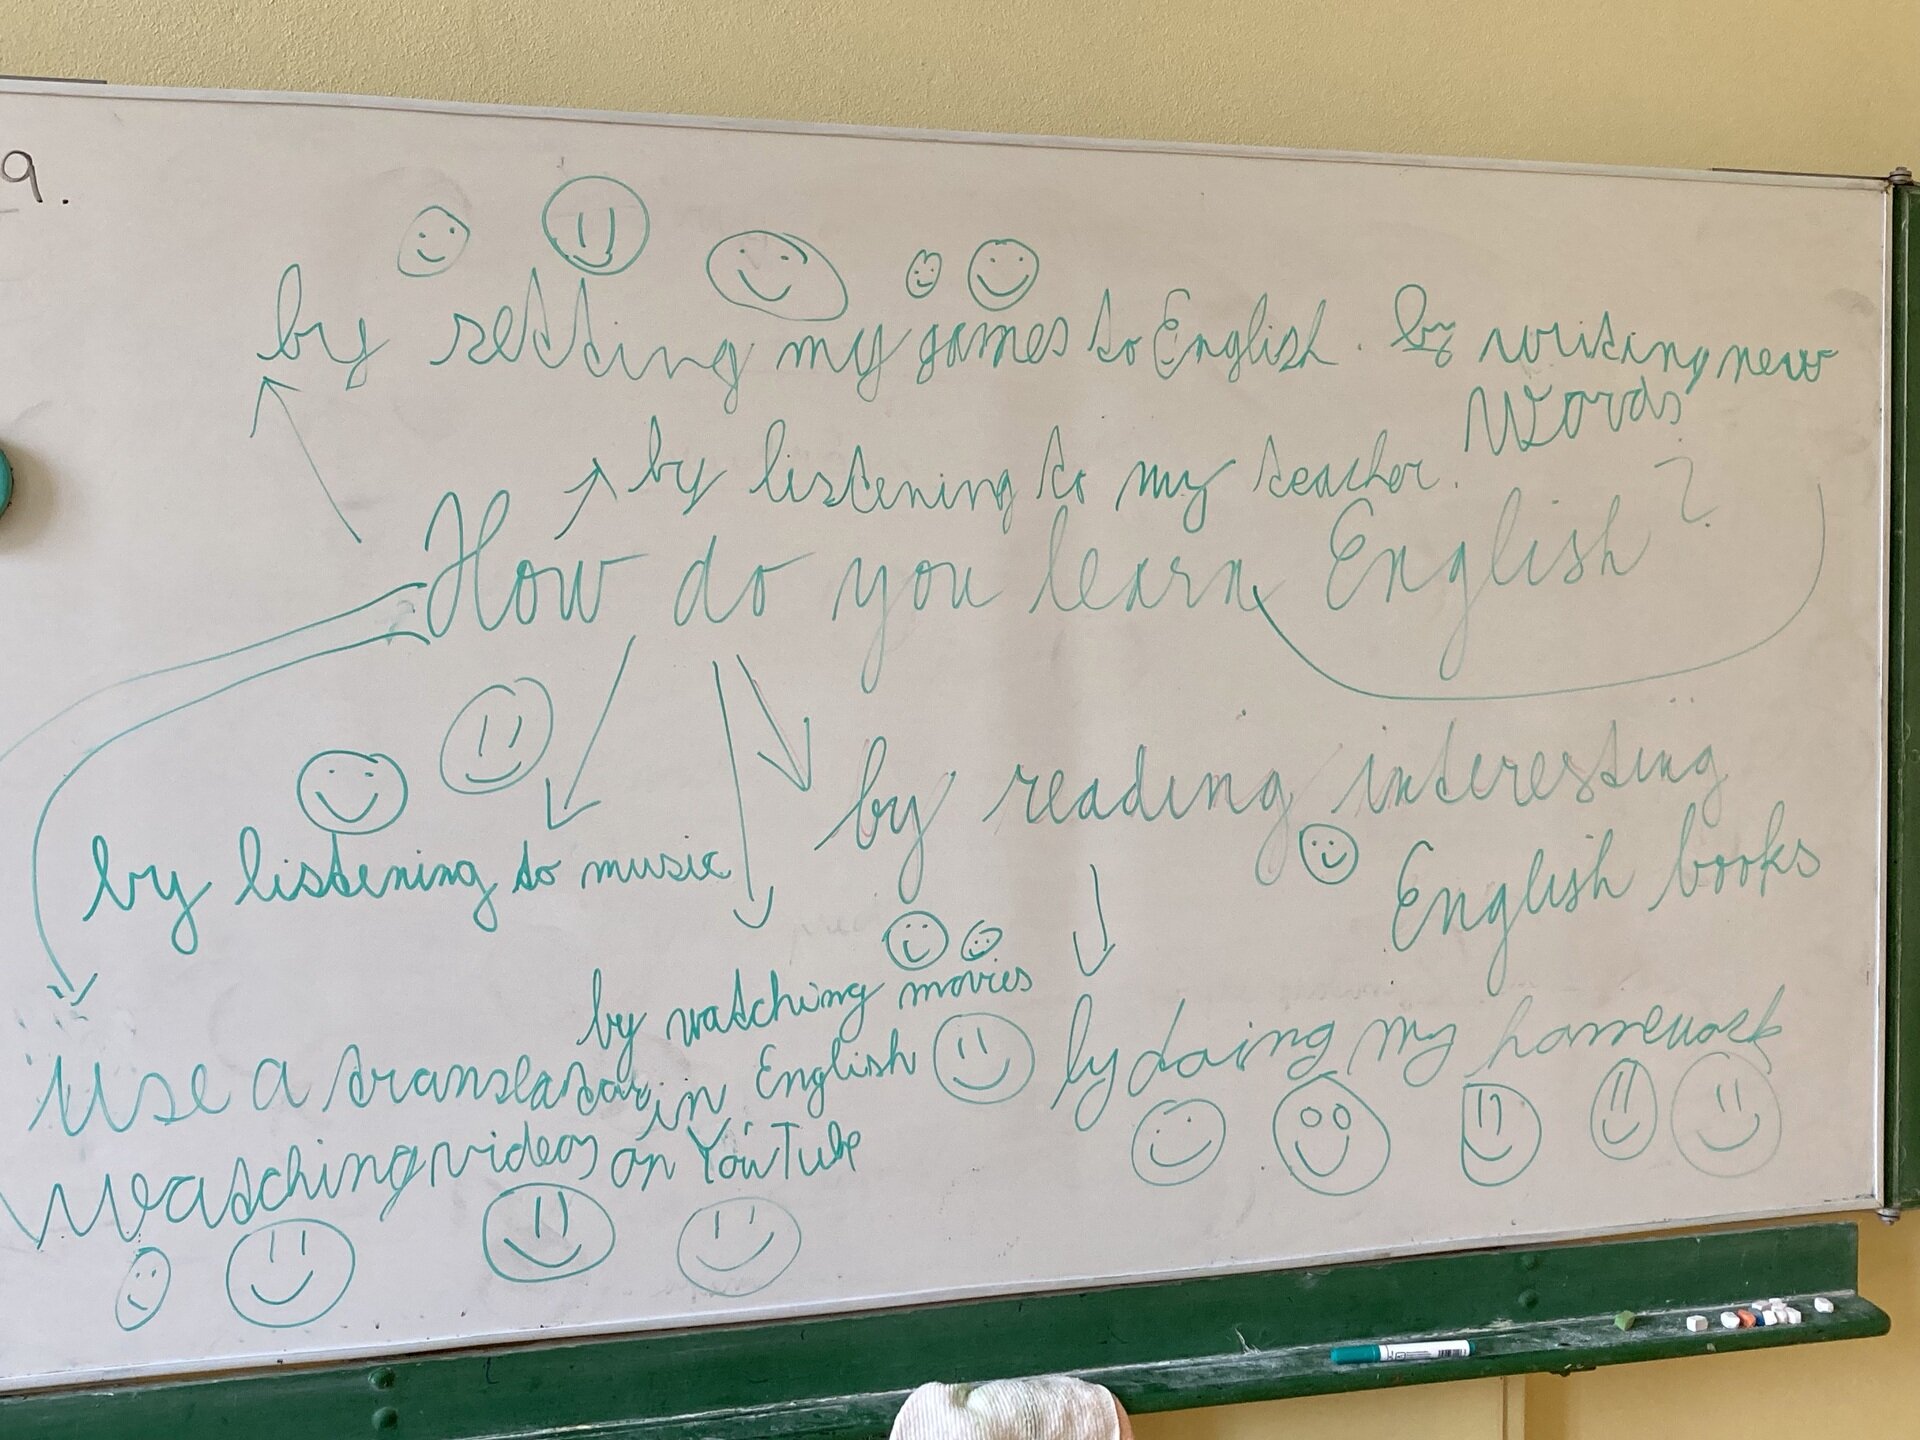 9.
by setting my games to English.
by writing new
Words
by listening to my teacher.
How do you learn English?
by listening to music
by reading interesting
English books
by watching movies
in English
by doing my homework
Use a translator
Watching videos on YouTube